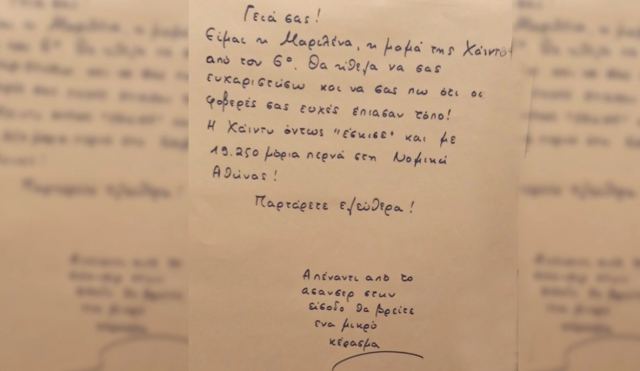 Γειά σας!
Είμαι η Μαριλένα, η μαμά της Χάιντυ
από τον 6ο. Θα ήθελα να σας
ευχαριστώσω και να σας πω ότι οι
φοβερές σας ευχές έπιασαν τόπο!
Η Χάιντυ όντως "έσκισε" και με
19.250 μόρια περνά στη Νομική
Αθήνας!
Παρτάρετε ελεύθερα!
Απέναντι από το
ασανσέρ στην
είσοδο θα βρείτε
ένα μικρό
κέρασμα